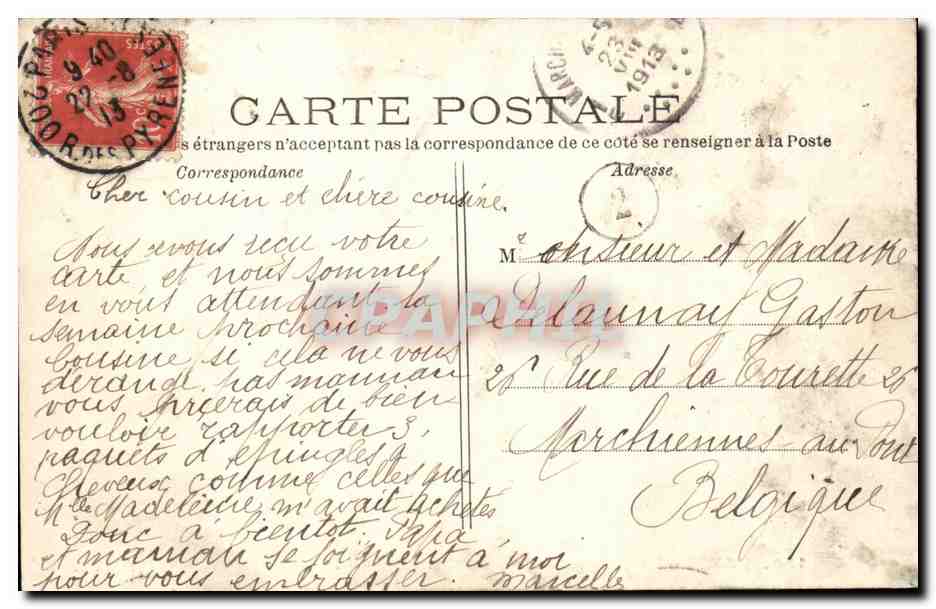 PARIS
9 40
22 -8
13
R. DES PYRENEES
10c
MARCH
4-5
23
VIII
1913
CARTE POSTALE
s étrangers n'acceptant pas la correspondance de ce côté se renseigner à la Poste
Correspondance
Adresse
Cher cousin et chère cousine.
Nous avons reçu votre
carte et nous sommes
en vous attendant la
semaine prochaine
Cousine si cela ne vous
dérange pas maman
vous prierais de bien
vouloir rapporter 3,
paquets d'épingles a
cheveux comme celles que
Mlle Madeleine m'avait achetés
Donc à bientot. Papa
et maman se joignent à moi
pour vous embrasser.
Marcelle
Monsieur et Madame
Delaunay Gaston
26 Rue de la Tourette 26
Marchiennes-au-Pont
Belgique
CPAPHIL